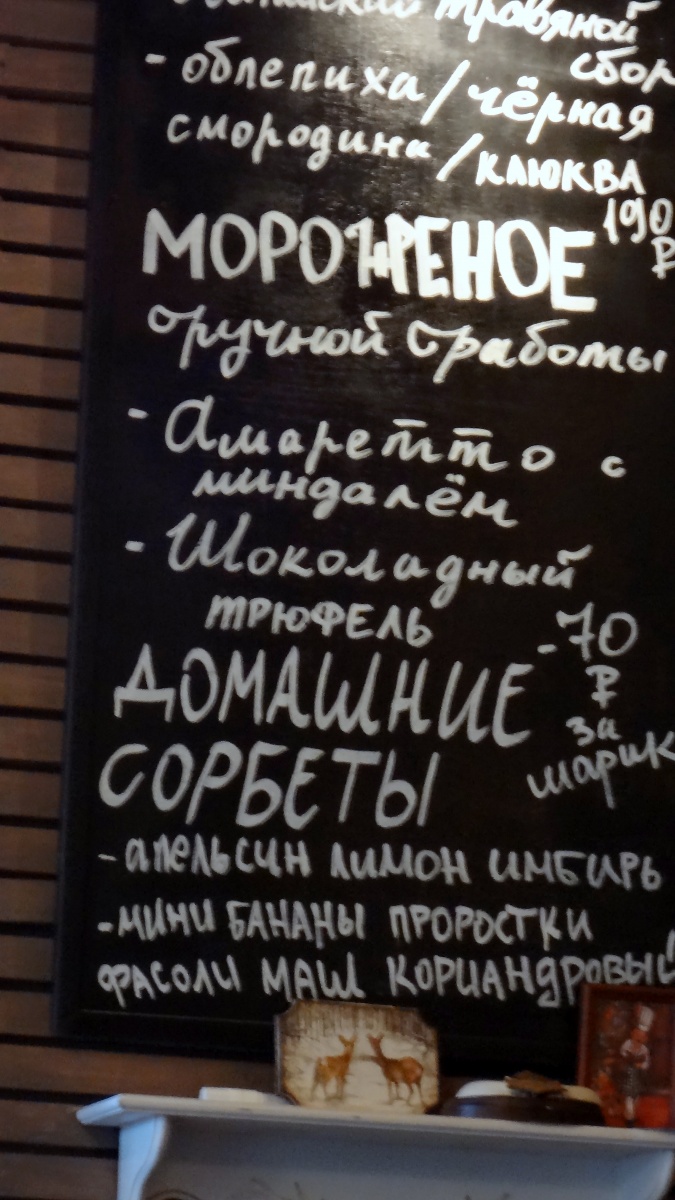 травяной
сбор
- облепиха/чёрная
смородина/клюква
190
₽
МОРОЖЕНОЕ
ручной работы
- Амаретто с
миндалём
- Шоколадный
трюфель
- 70
₽
за
шарик
ДОМАШНИЕ
СОРБЕТЫ
- апельсин лимон имбирь
- мини бананы проростки
фасоли маш кориандровый